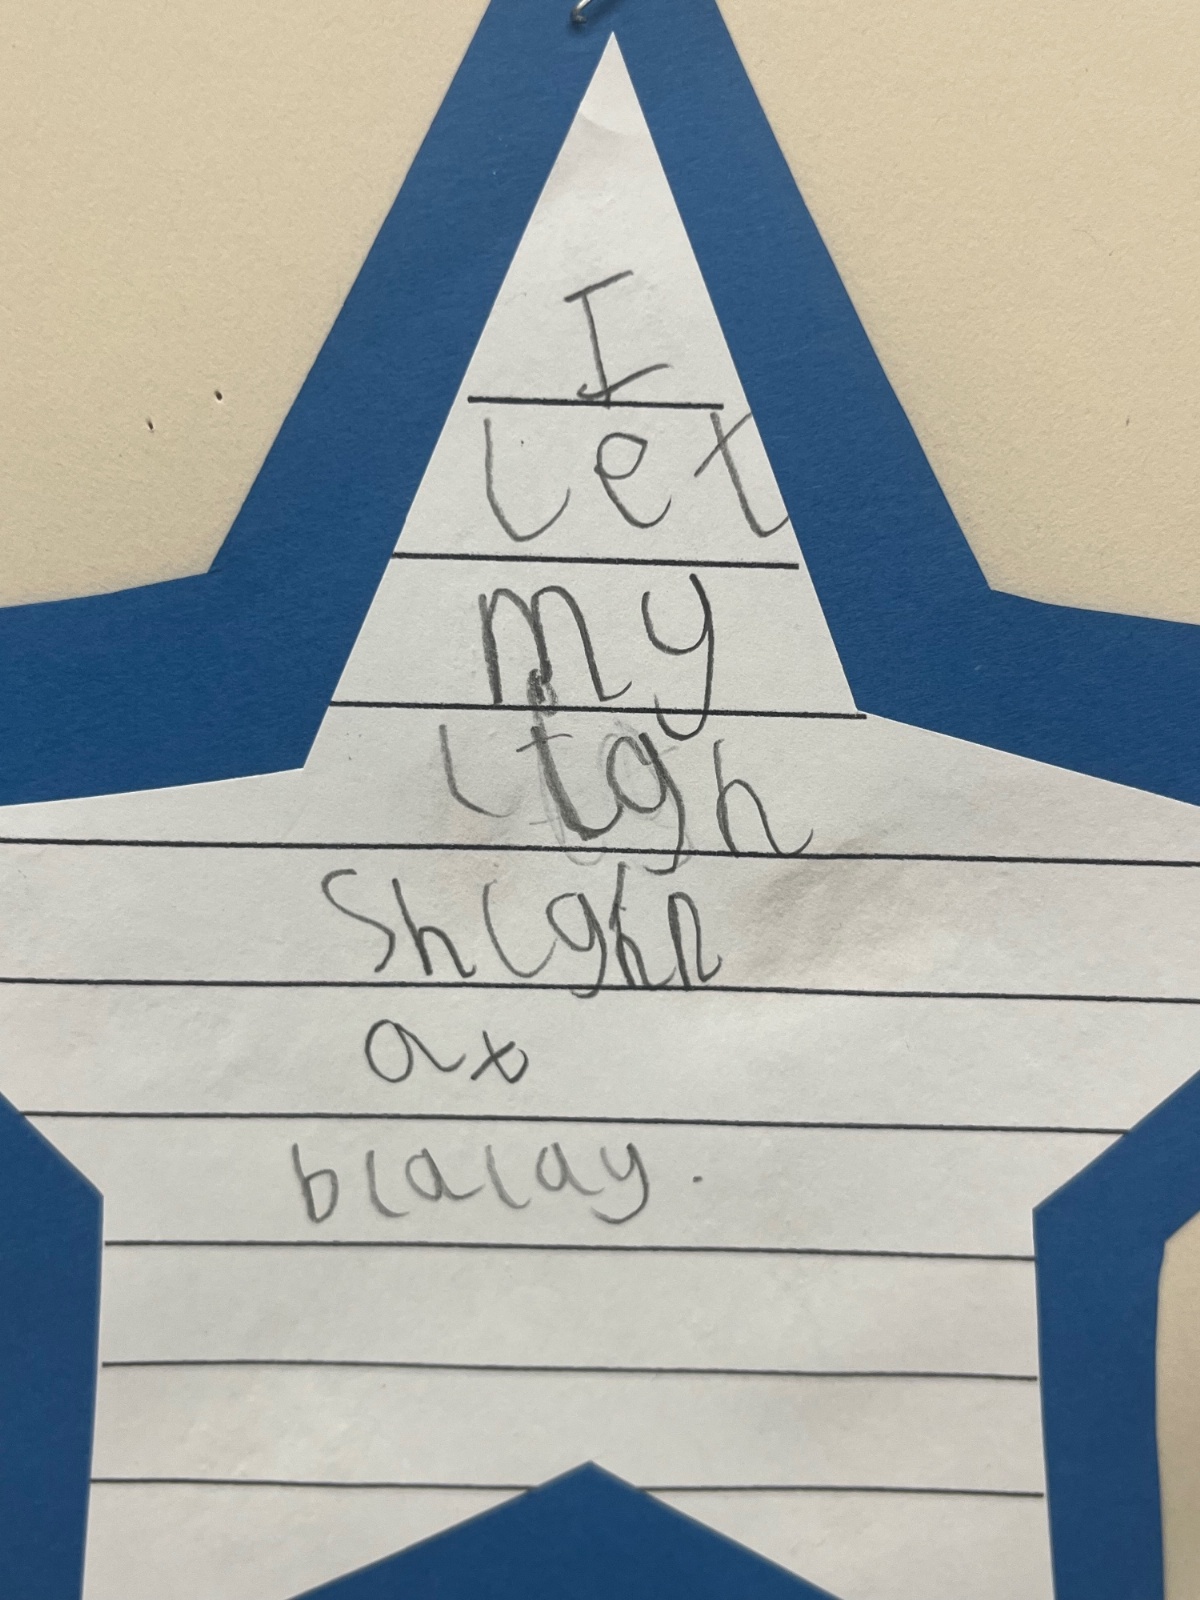 I
let
my
ltgh
Shighn
at
blalay.